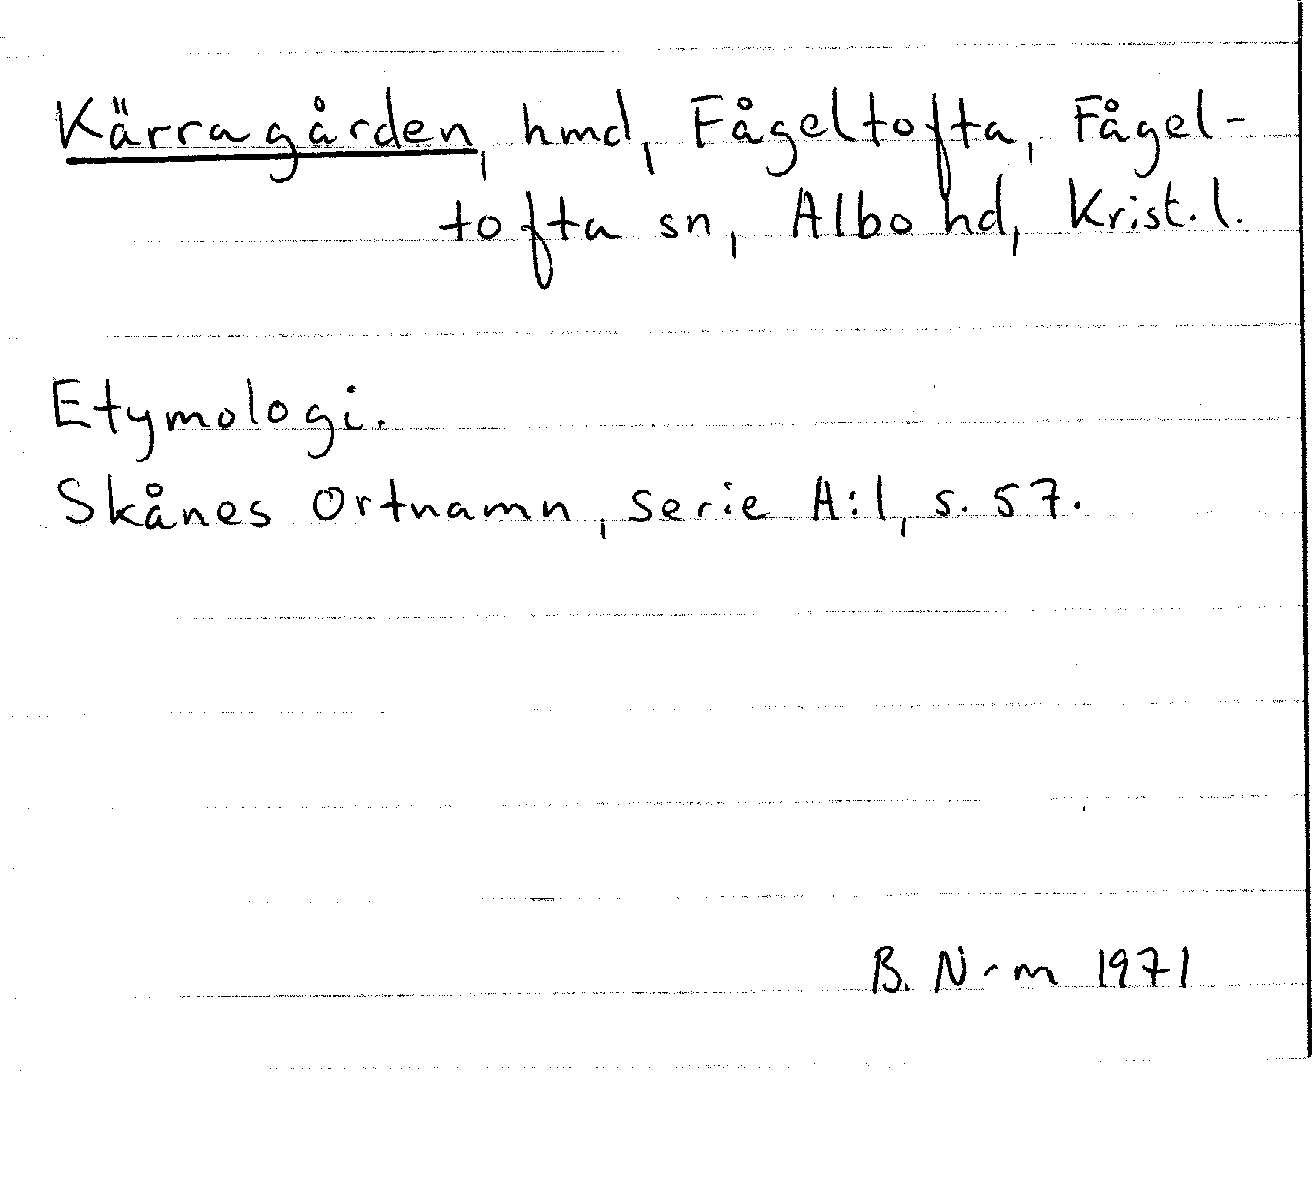 Kärragården, hmd, Fågeltofta, Fågel-
tofta sn, Albo hd, Krist. l.
Etymologi.
Skånes Ortnamn, serie A:1, s. 57.
B. N-m 1971